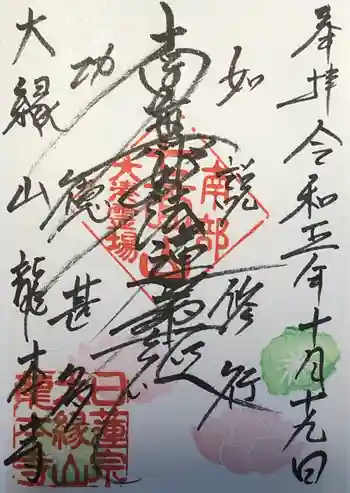 奉拝 令和五年十月十九日
如説修行
南無妙法蓮華経
功徳甚多
大縁山 龍本寺
南部
霊場
日蓮宗
大縁山
龍本寺